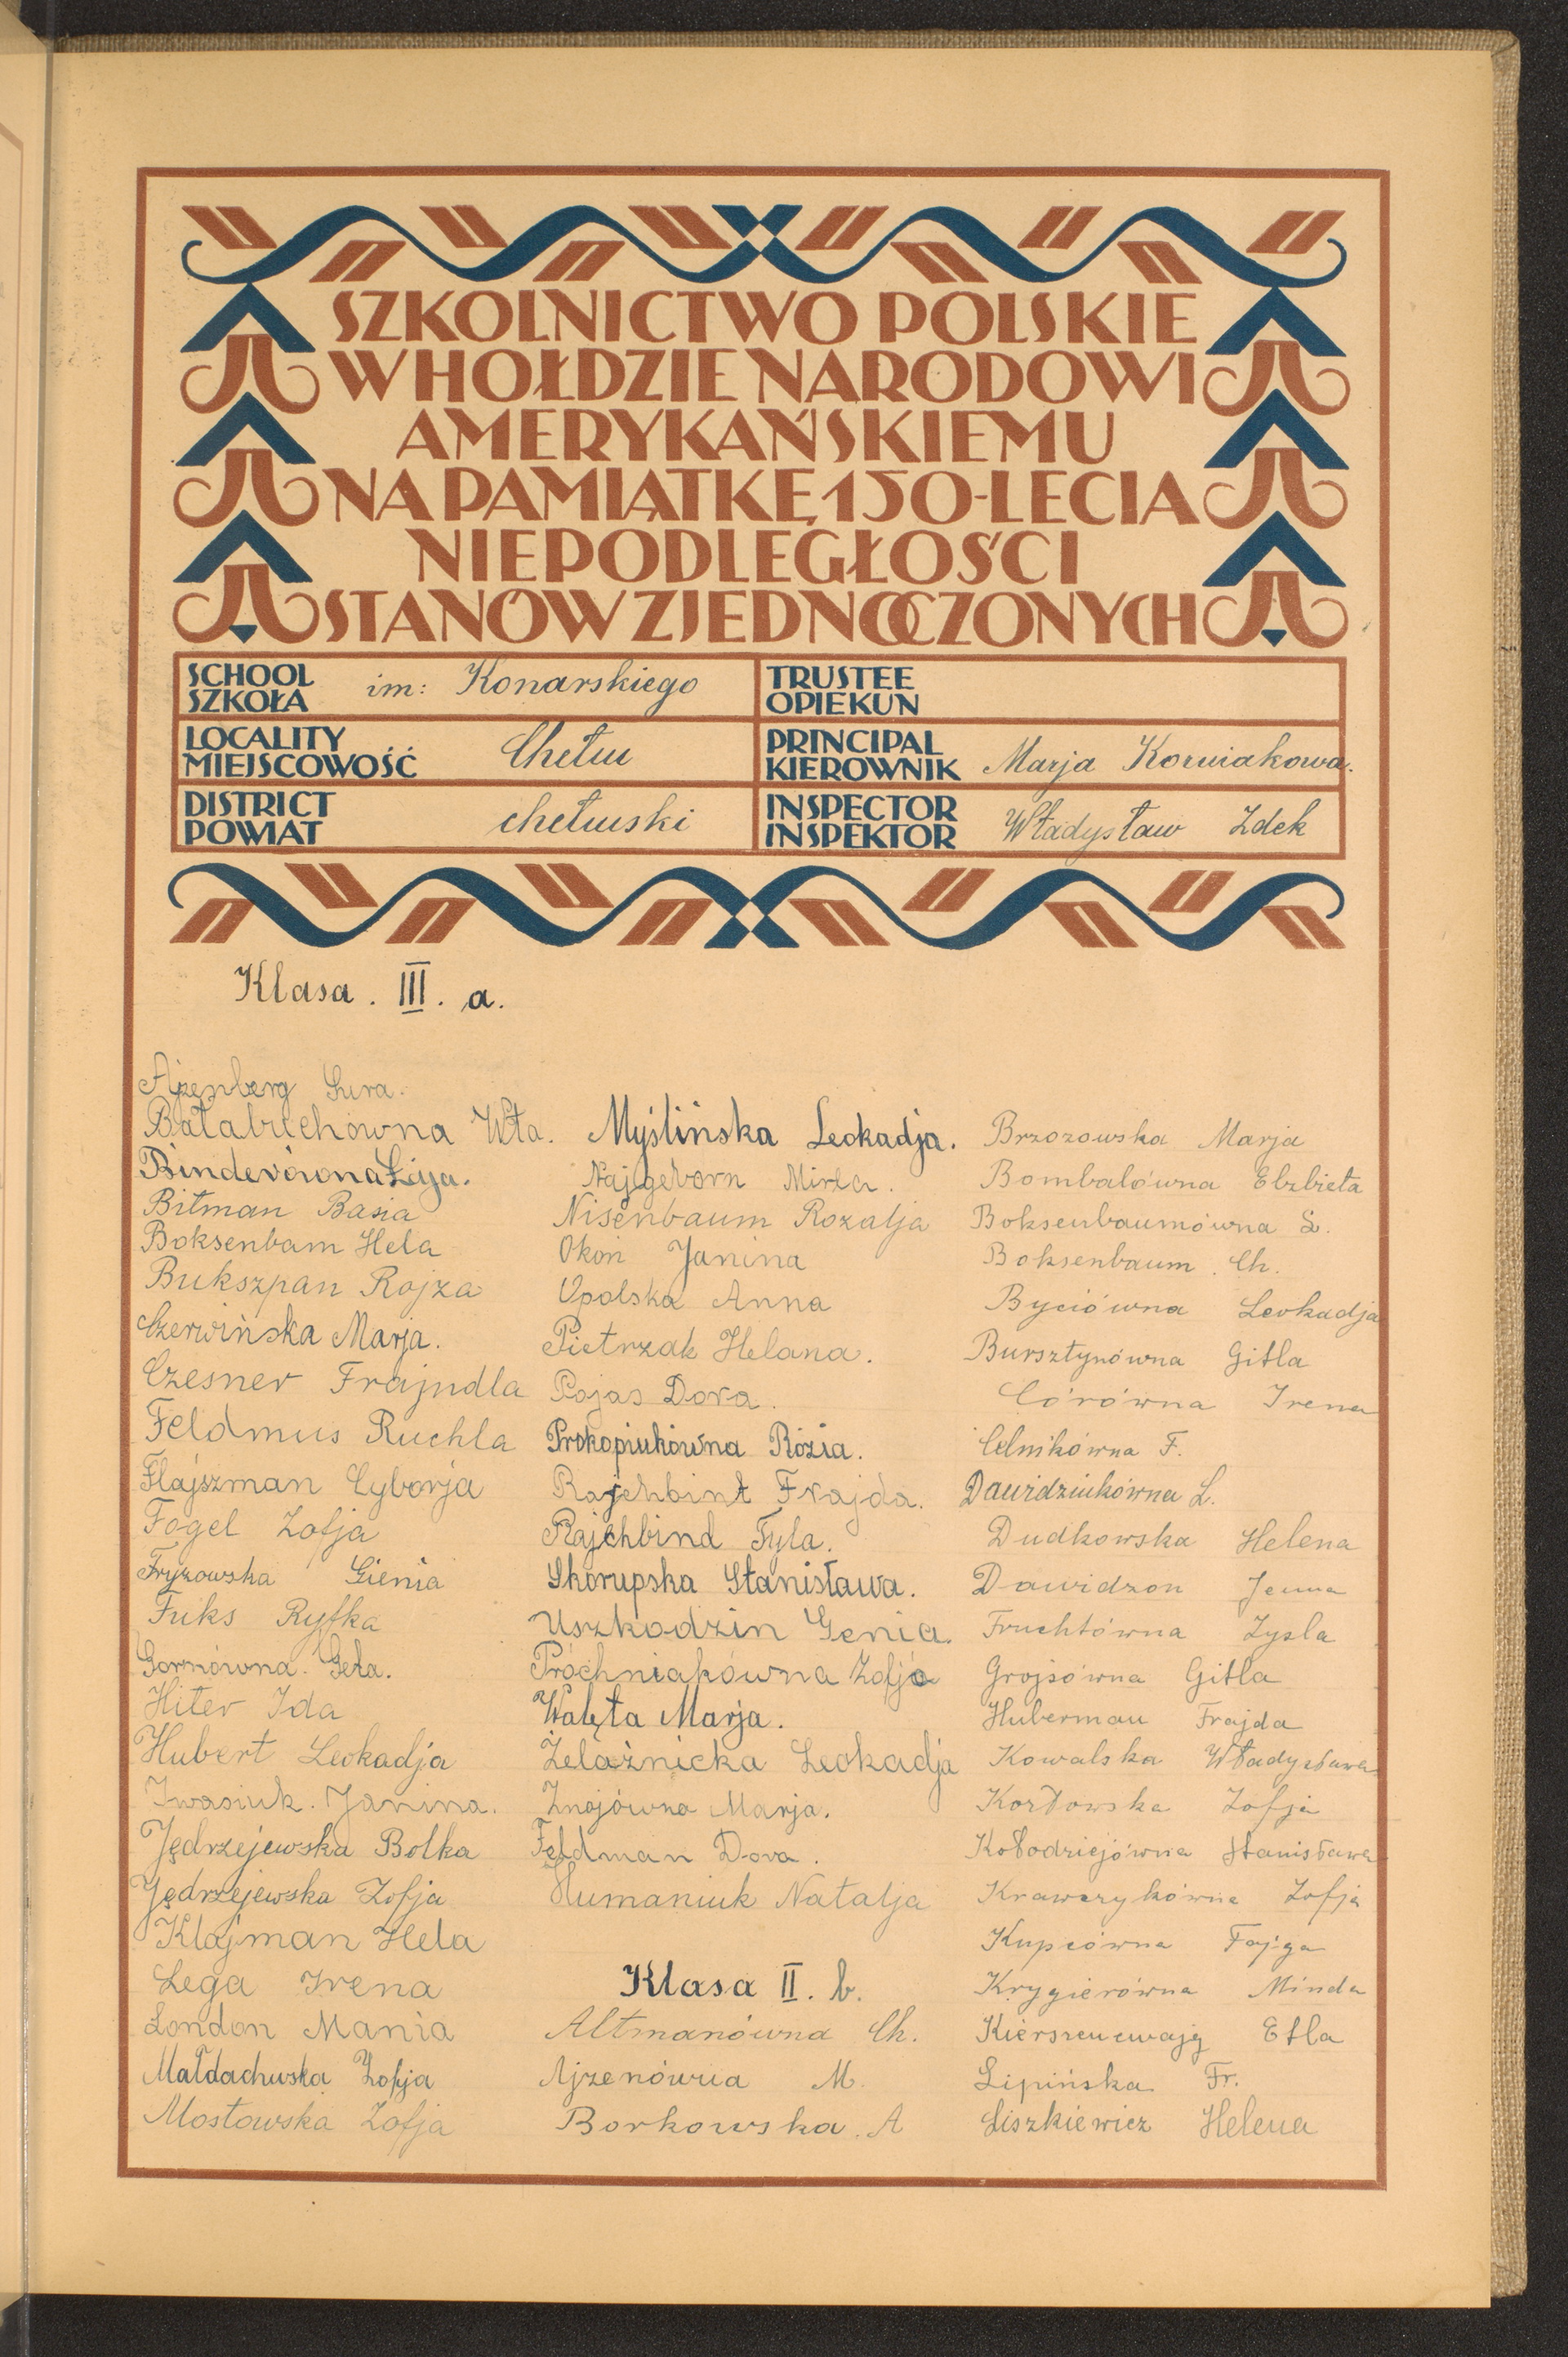 SZKOLNICTWO POLSKIE
W HOŁDZIE NARODOWI
AMERYKAŃSKIEMU
NA PAMIĄTKĘ 150-LECIA
NIEPODLEGŁOŚCI
STANÓW ZJEDNOCZONYCH
SCHOOL
SZKOŁA im: Konarskiego
TRUSTEE
OPIEKUN
LOCALITY
MIEJSCOWOŚĆ Chełm
PRINCIPAL
KIEROWNIK Marja Korniakowa.
DISTRICT
POWIAT chełmski
INSPECTOR
INSPEKTOR Władysław Zdek
Klasa. III. a.
Ajzenberg Sura.
Bałabuchówna Wła.
Binderówna Łaja.
Bitman Basia
Boksenbam Hela
Bukszpan Rojza
Czerwińska Marja.
Czesner Frajndla
Feldmus Ruchla
Flajszman Cyborja
Fogel Zofja
Fryzowska Gienia
Fuks Ryfka
Gornówna. Geła.
Hiter Ida
Hubert Leokadja
Iwasiuk. Janina.
Jędrzejewska Bolka
Jędrzejewska Zofja
Klajman Hela
Lega Irena
London Mania
Małdachowska Zofja
Mostowska Zofja
Myślińska Leokadja.
Najgeborn Mirla.
Nisenbaum Rozalja
Okoń Janina
Opolska Anna
Pietrzak Helana.
Pojas Dora.
Prokopiukówna Rózia.
Rajchbint Frajda.
Rajchbind Fyla.
Skorupska Stanisława.
Uszkodzin Genia.
Próchniakówna Zofja
Walęta Marja.
Żelaźnicka Leokadja
Znojówna Marja.
Feldman Dora.
Humaniuk Natalja
Klasa II. b.
Altmanówna Ch.
Ajzenówna M.
Borkowska. A
Brzozowska Marja
Bombalówna Elzbieta
Boksenbaumówna S.
Boksenbaum. Ch.
Byciówna Leokadja
Bursztynówna Gitla
Córówna Irena
Celnikówna F.
Dawidziukówna L.
Dudkowska Helena
Dawidzon Jenna
Fruchtówna Zysla
Grojsówna Gitla
Huberman Frajda
Kowalska Władysława
Kozłowska Zofja
Kołodziejówna Stanisława
Krawczykówna Zofja
Kupcówna Fajga
Krygierówna Minda
Kierszencwajg Etla
Lipińska Fr.
Liszkiewicz Helena